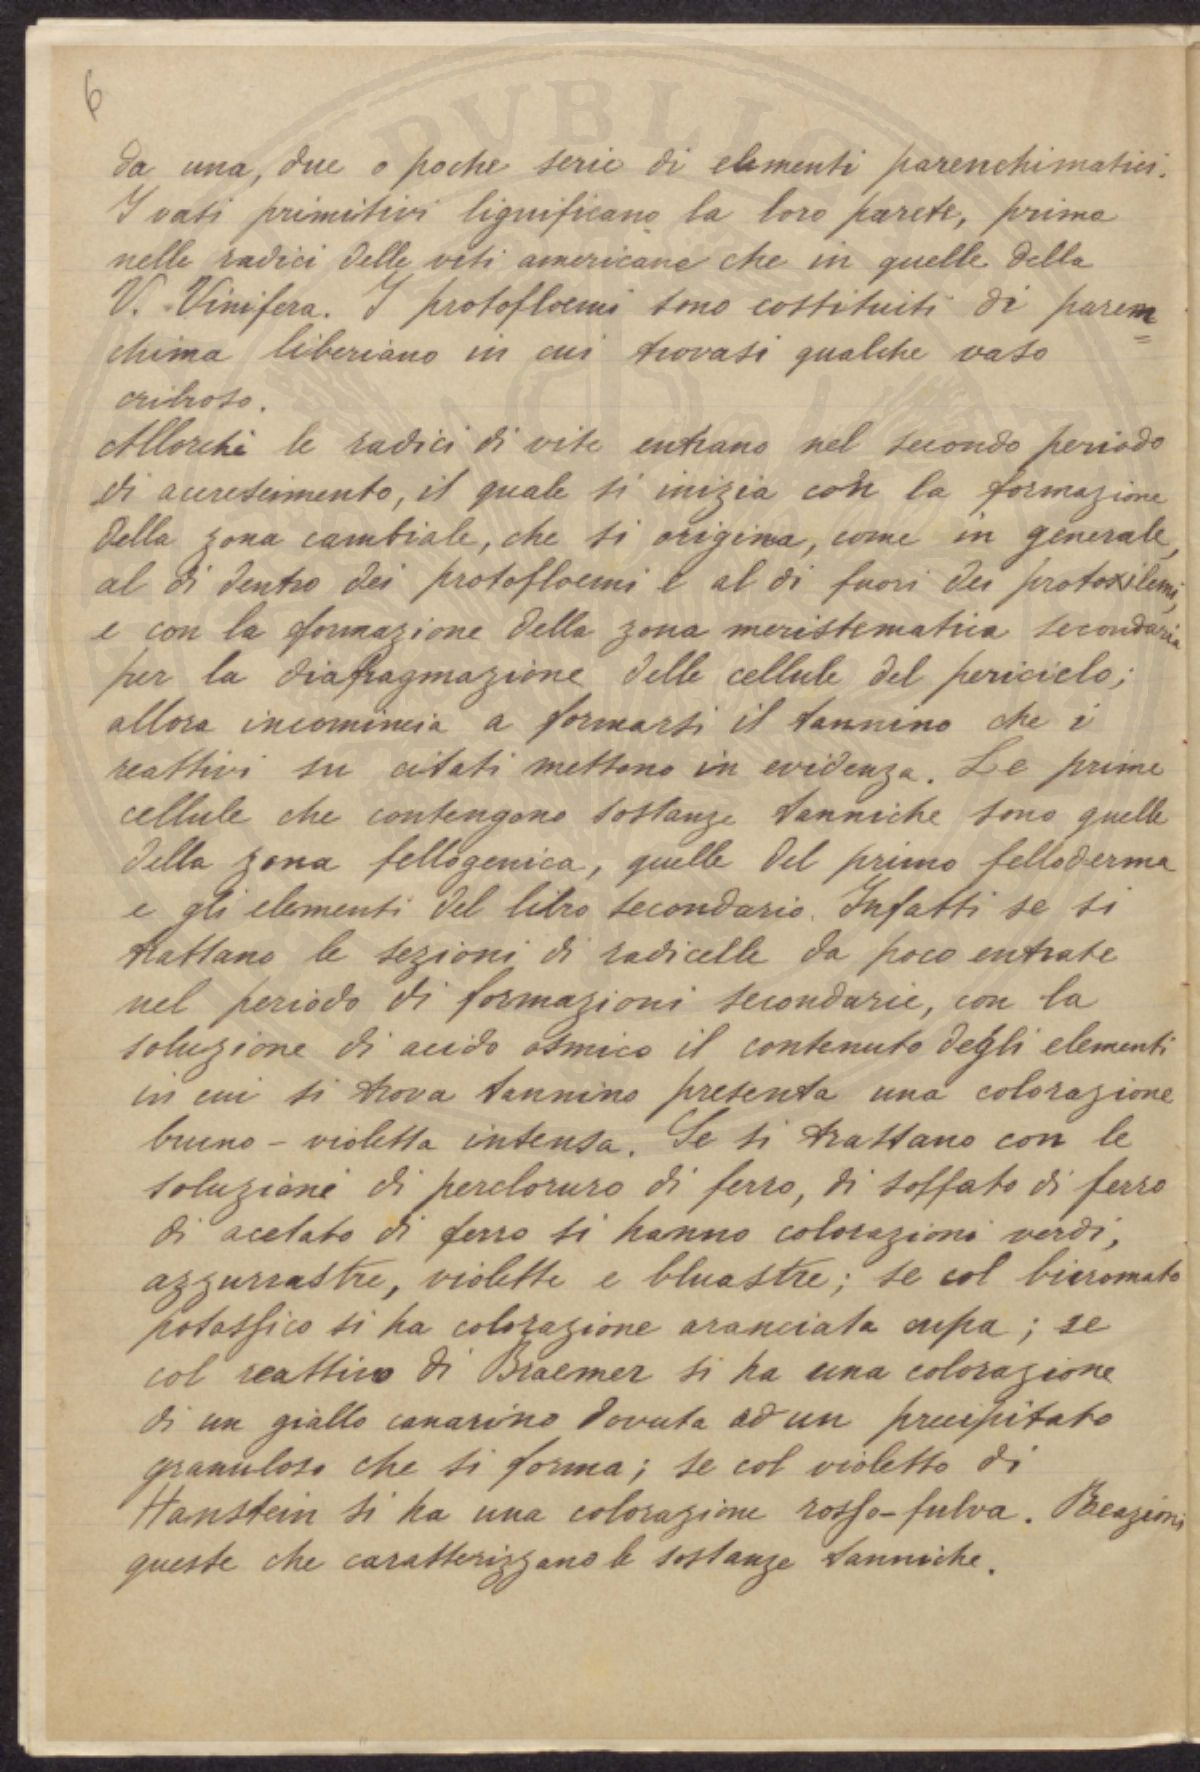 6
da una, due o poche serie di elementi parenchimatici.
I vasi primitivi lignificano la loro parete, prima
nelle radici delle viti americane che in quelle della
V. Vinifera. I protofloemi sono costituiti di paren=
chima liberiano in cui trovasi qualche vaso
cribroso.
Allorchè le radici di vite entrano nel secondo periodo
di accrescimento, il quale si inizia con la formazione
della zona cambiale, che si origina, come in generale,
al di dentro dei protofloemi e al di fuori dei protoxilemi,
e con la formazione della zona meristematica secondaria
per la diafragmazione delle cellule del periciclo;
allora incomincia a formarsi il tannino che i
reattivi su citati mettono in evidenza. Le prime
cellule che contengono sostanze tanniche sono quelle
della zona fellogenica, quelle del primo felloderma
e gli elementi del libro secondario. Infatti se si
trattano le sezioni di radicelle da poco entrate
nel periodo di formazioni secondarie, con la
soluzione di acido osmico il contenuto degli elementi
in cui si trova tannino presenta una colorazione
bruno-violetta intensa. Se si trattano con le
soluzioni di percloruro di ferro, di solfato di ferro
di acetato di ferro si hanno colorazioni verdi,
azzurrastre, violette e bluastre; se col bicromato
potassico si ha colorazione aranciata cupa; se
col reattivo di Braemer si ha una colorazione
di un giallo canarino dovuta ad un precipitato
granuloso che si forma; se col violetto di
Hanstein si ha una colorazione rosso-fulva. Reazioni
queste che caratterizzano le sostanze tanniche.
PUBLIC